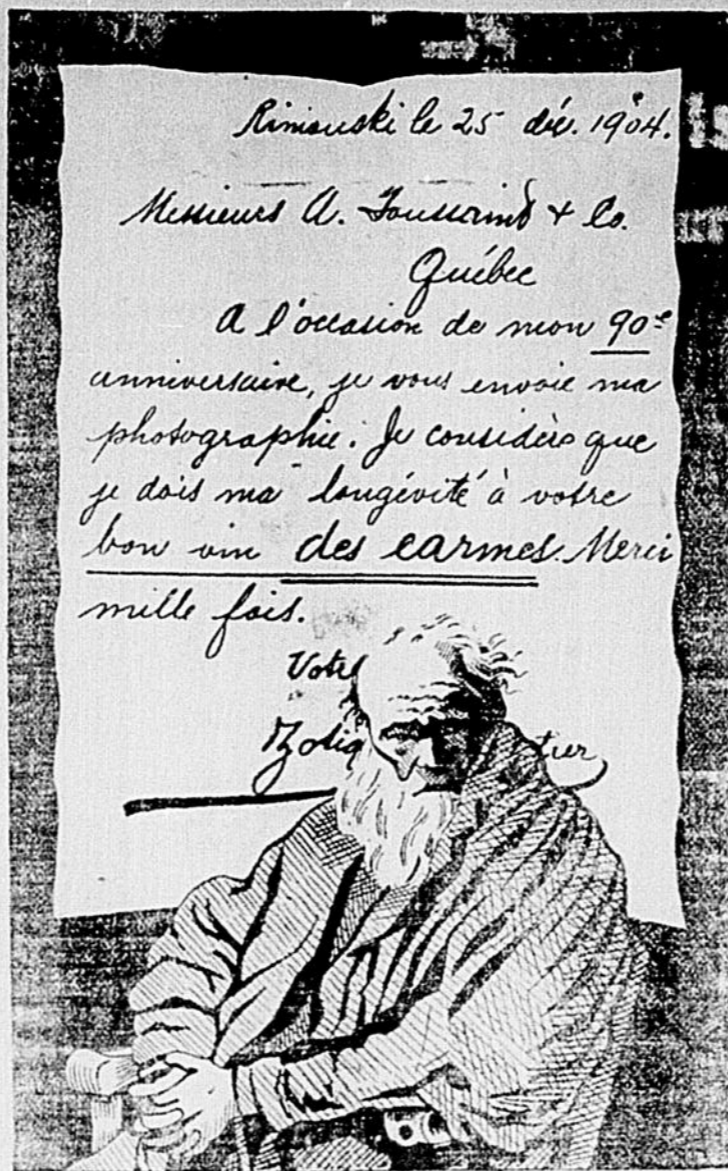 Rimouski le 25 déc. 1904.
Messieurs A. Toussaint & Co.
Québec
A l'occasion de mon 90e
anniversaire, je vous envoie ma
photographie. Je considère que
je dois ma longévité à votre
bon vin des carmes. Merci
mille fois.